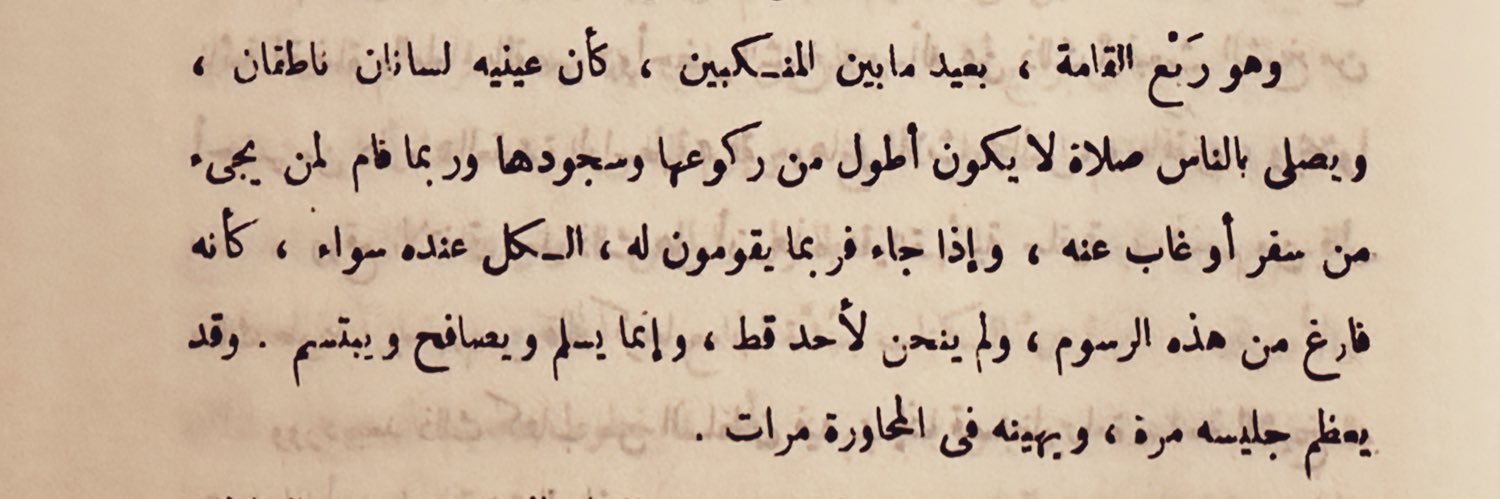 وهو رَبْع القامة ، بعيد مابين المنكبين ، كأن عينيه لسانان ناطقان ،
ويصلى بالناس صلاة لا يكون أطول من ركوعها وسجودها وربما قام لمن يجىء
من سفر أو غاب عنه ، وإذا جاء فربما يقومون له ، الكل عنده سواء ، كأنه
فارغ من هذه الرسوم ، ولم ينحن لأحد قط ، وإنما يسلم ويصافح ويبتسم . وقد
يعظم جليسه مرة ، ويهينه فى المحاورة مرات .